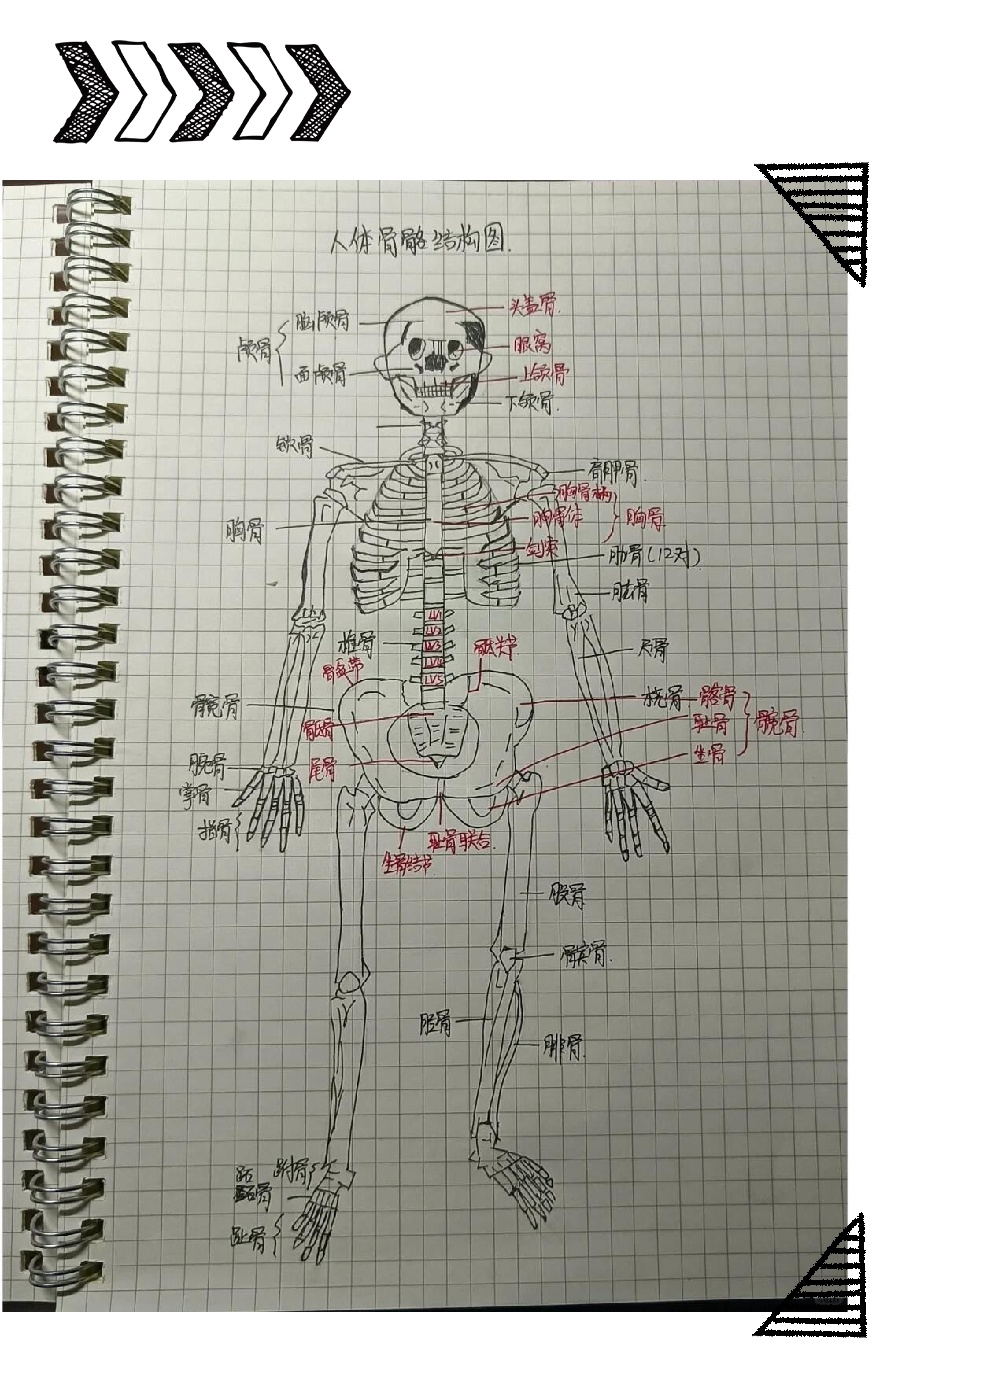 人体骨骼结构图.
头盖骨.
脑颅骨
颅骨
眼窝
面颅骨
上颌骨
下颌骨.
锁骨
肩胛骨.
胸骨柄
胸骨体
胸骨
胸骨
剑突
肋骨(12对)
肱骨
LV1
LV2
椎骨
LV3
骶岬
尺骨
LV4
LV5
髋骨
桡骨
髂骨
骶骨
耻骨
髋骨.
坐骨
腕骨
尾骨
掌骨
指骨
耻骨联合.
坐骨结节
股骨
髌骨.
胫骨
腓骨
跗骨
趾骨